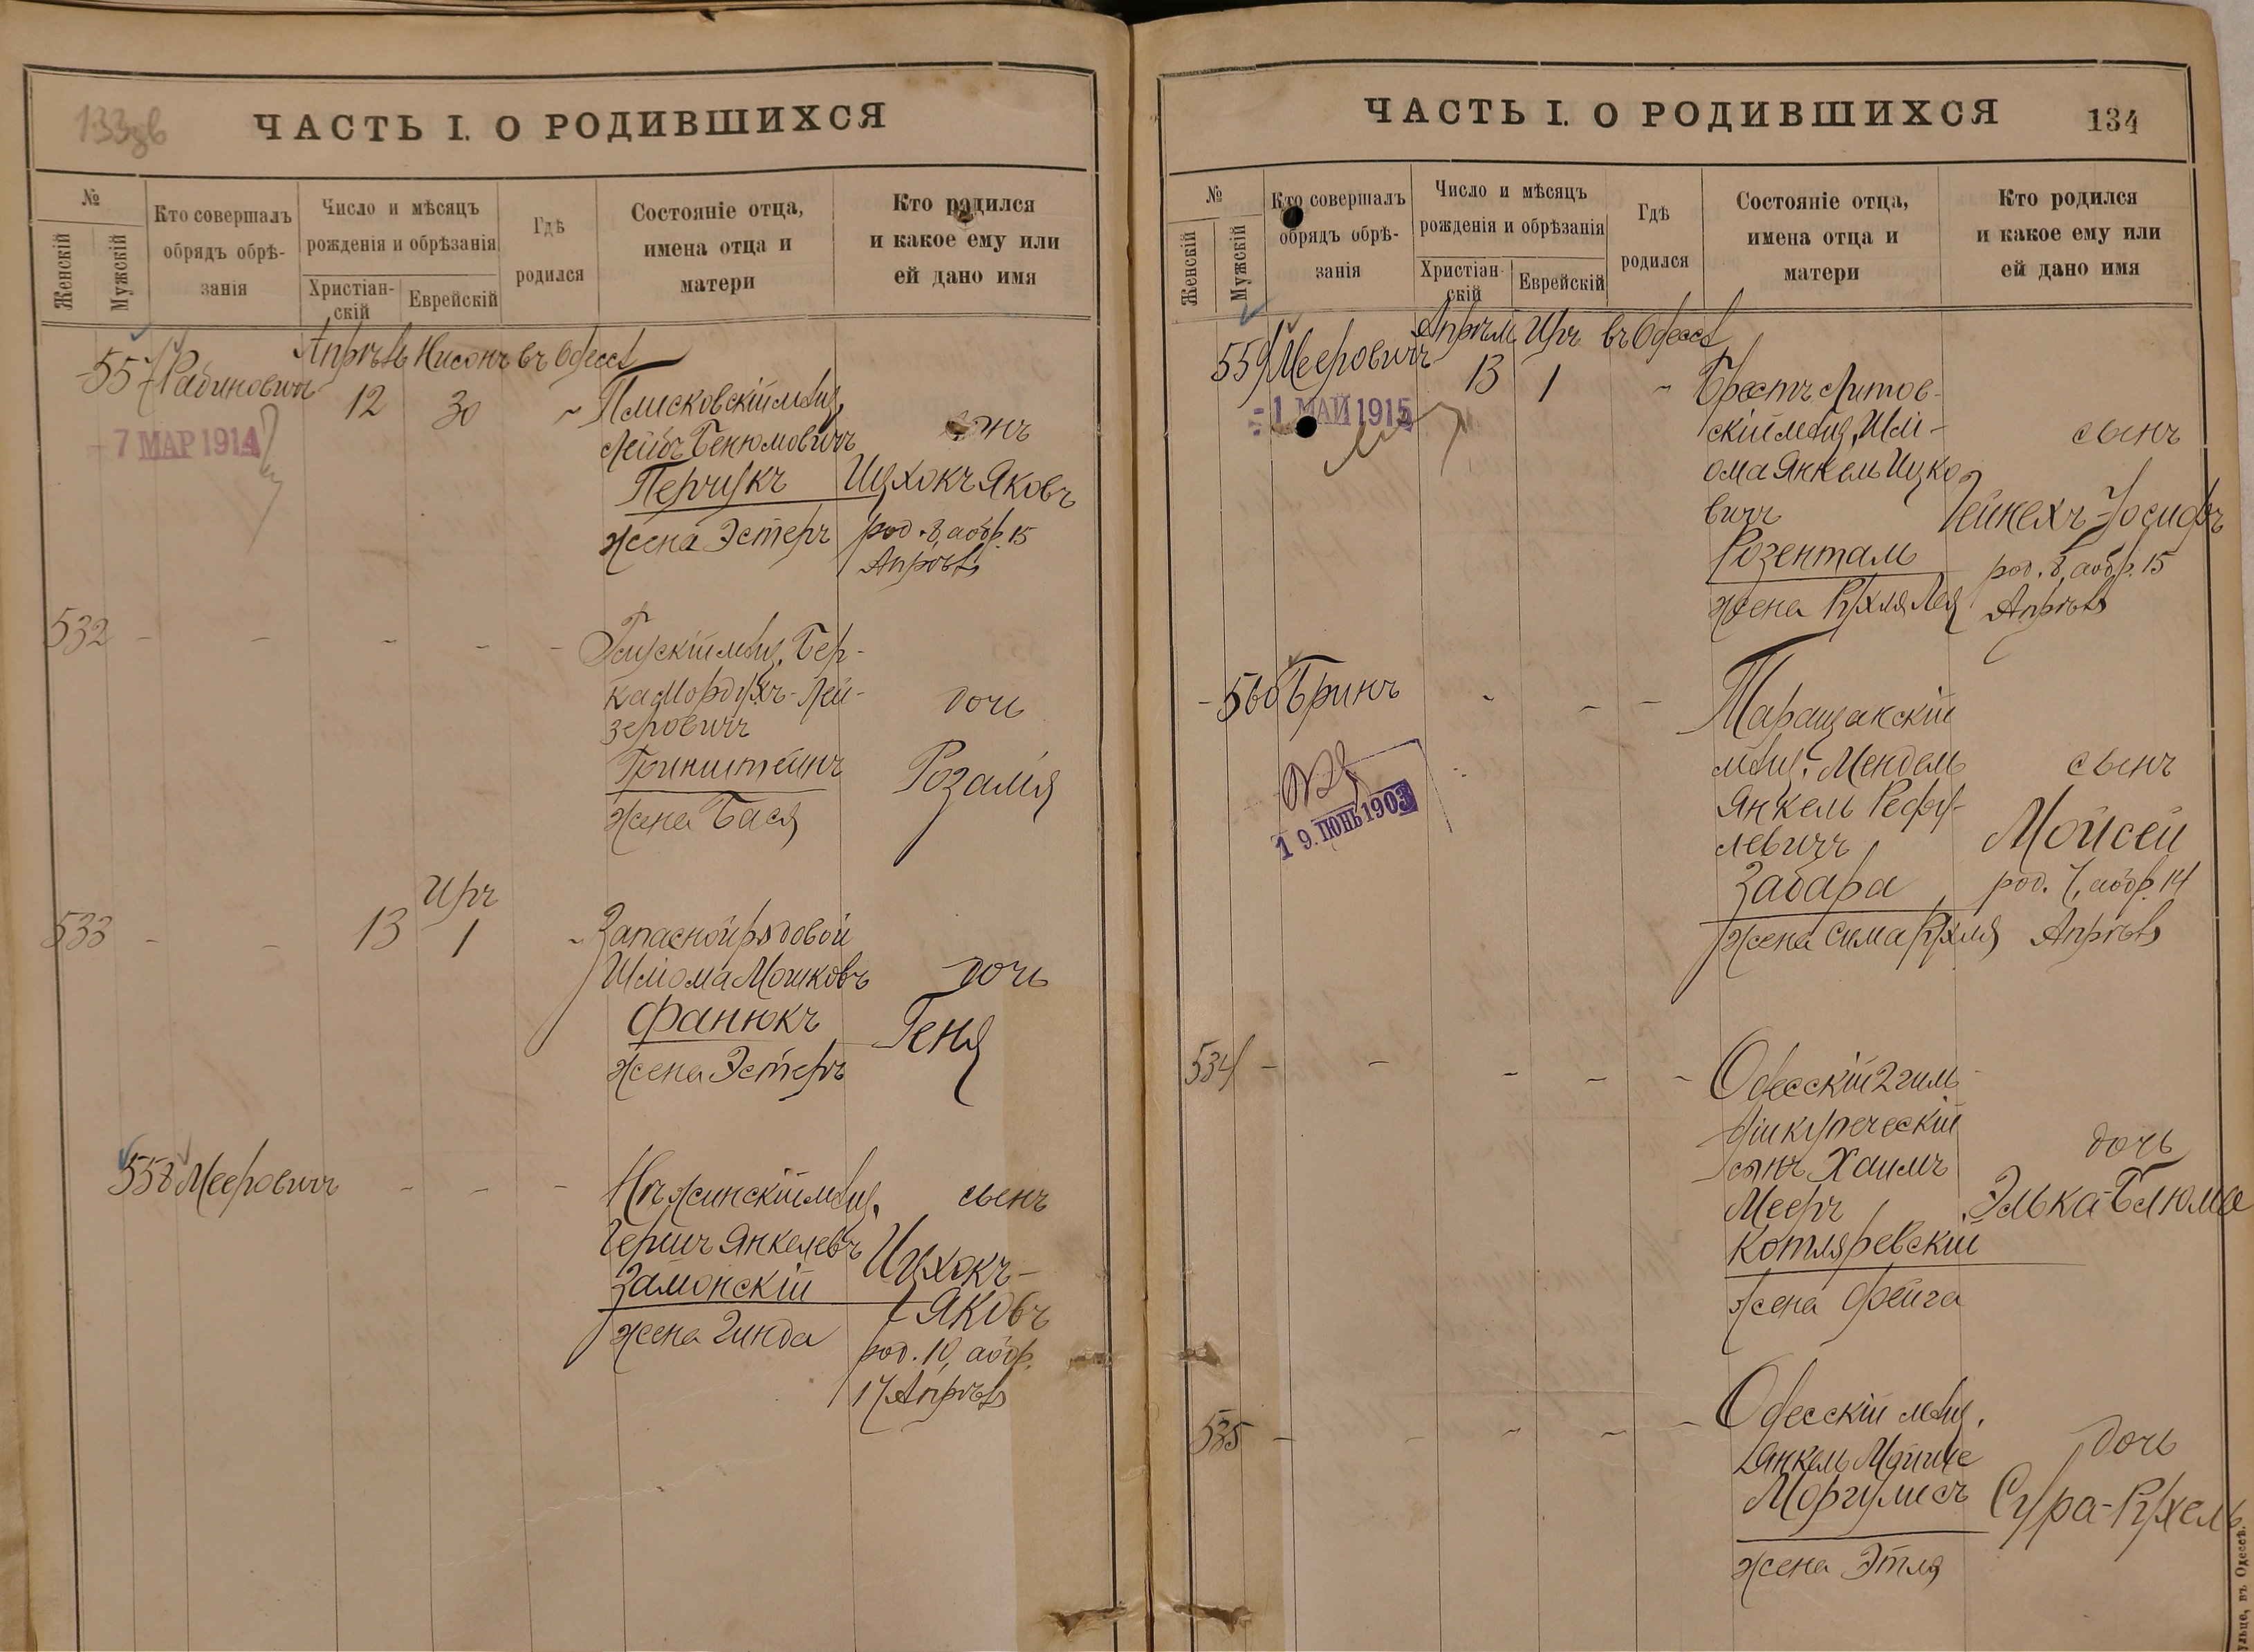 133зв
ЧАСТЬ I. О РОДИВШИХСЯ
№
Женскій
Мужскій
Кто совершалъ
обрядъ обрѣ-
занія
Число и мѣсяцъ
рожденія и обрѣзанія
Христіан-
скій
Еврейскій
Гдѣ
родился
Состояніе отца,
имена отца и
матери
Кто родился
и какое ему или
ей дано имя
557 Рабиновичъ
7 МАР 1914
Апрѣль Нисонъ въ Одессѣ
12 30 ~
Плисковскій мѣщ.
Лейбъ Бенюмовичъ
Перчукъ
жена Эстеръ
Ицхокъ Яковъ
род. 8, аобр. 15
Апрѣля
532 - - - - -
мѣщ. Бер-
ка Мордухъ-Лей-
зеровичъ
Гринштейнъ
жена Бася
дочь
Розалія
533 - -
Иръ
13 1 ~
Запасной рядовой
Шліома Мошковъ
Фанюкъ
жена Эстеръ
дочь
Геня
558 Мееровичъ - - -
Нѣжинскій мѣщ.
Гершъ Янкелевъ
Замонскій
жена Гинда
сынъ
Ицхокъ-
Яковъ
род. 10, аобр.
17 Апрѣля
ЧАСТЬ I. О РОДИВШИХСЯ
134
№
Женскій
Мужскій
Кто совершалъ
обрядъ обрѣ-
занія
Число и мѣсяцъ
рожденія и обрѣзанія
Христіан-
скій
Еврейскій
Гдѣ
родился
Состояніе отца,
имена отца и
матери
Кто родился
и какое ему или
ей дано имя
559 Мееровичъ
1 МАЙ 1915
Апрѣль Иръ въ Одессѣ
13 1 ~
Брестъ Литов-
скій мѣщ. Шлі-
ома Янкель Ицко
вичъ
Розенталь
жена Рухля Лея
сынъ
Гейнехъ-Іосифъ
род. 8, аобр. 15
Апрѣля
560 Бринъ - - -
19. ІЮНЬ 1903
Таращанскій
мѣщ. Мендель
Янкель Рефу-
левичъ
Забара
жена Сима Рухля
сынъ
Мойсей
род. 7, аобр. 14
Апрѣля
534 - - - - -
Одесскій 2 гиль
діи купеческій
сынъ Хаимъ
Мееръ
Котляревскій
жена Фейга
дочь
Элька-Блюма
535 - - - - -
Одесскій мѣщ.
Янкель
Моргулисъ
жена Этля
дочь
Сура-Рухель
въ Одессѣ.